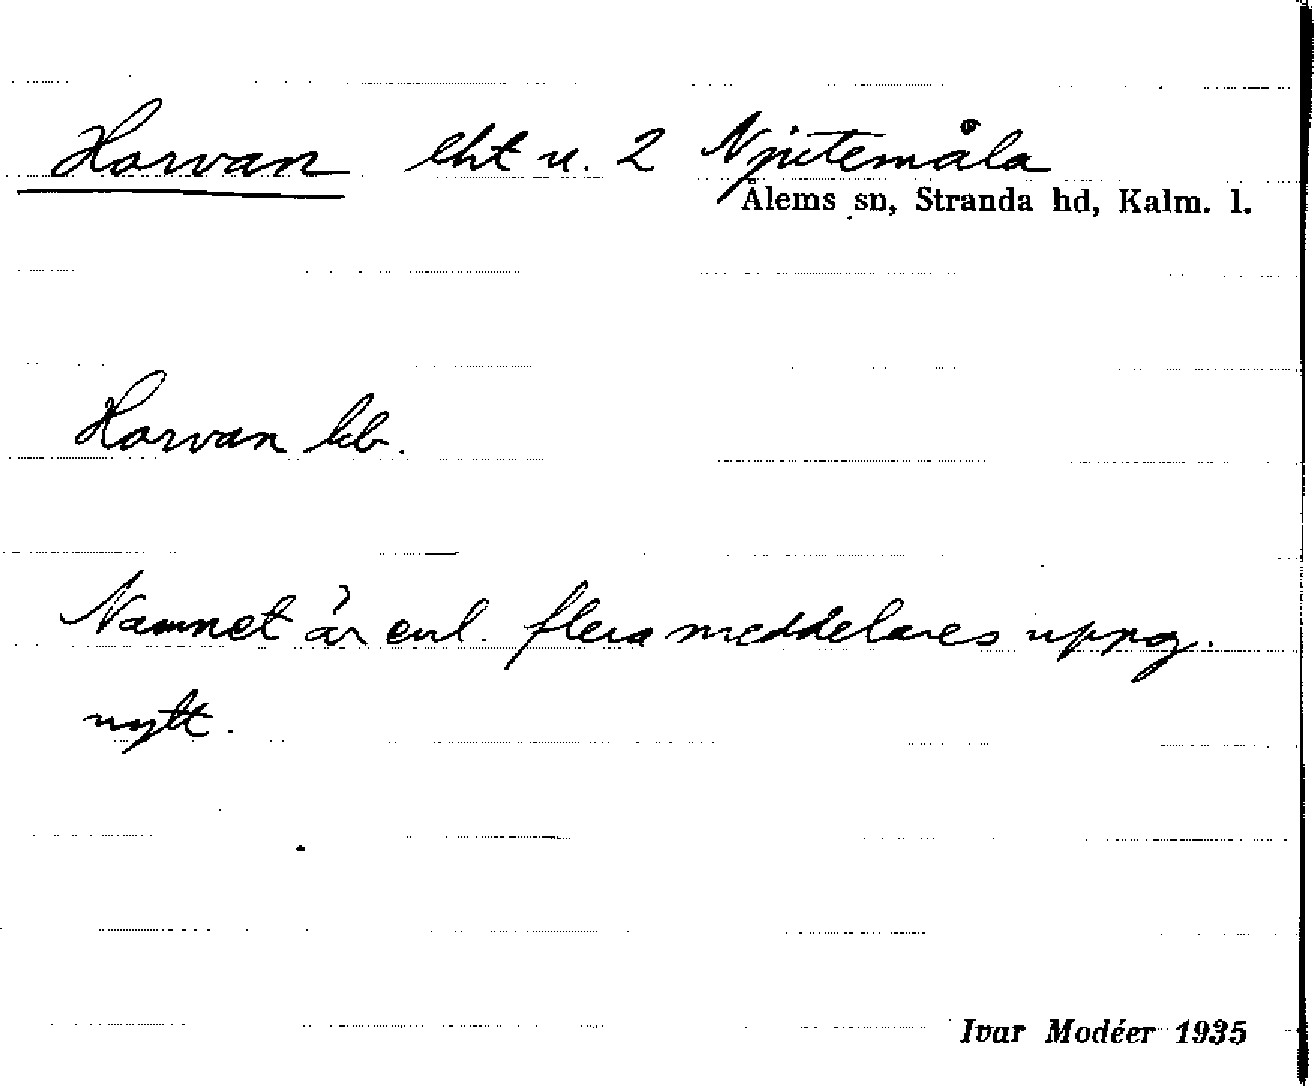 Horvan eht u. 2 Njutemåla
Ålems sn, Stranda hd, Kalm. l.
Horvan kb.
Namnet är enl. flera meddelares uppg.
nytt.
Ivar Modéer 1935